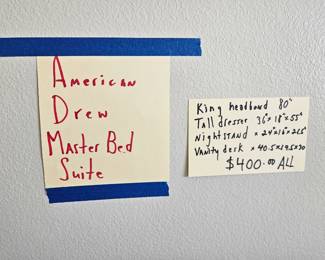 American
Drew
Master Bed
Suite
King headboard 80"
Tall dresser 36"x18"x55"
Nightstand x 24"x16"x
Vanity desk x 40.5x19.5x30
$400.00 ALL